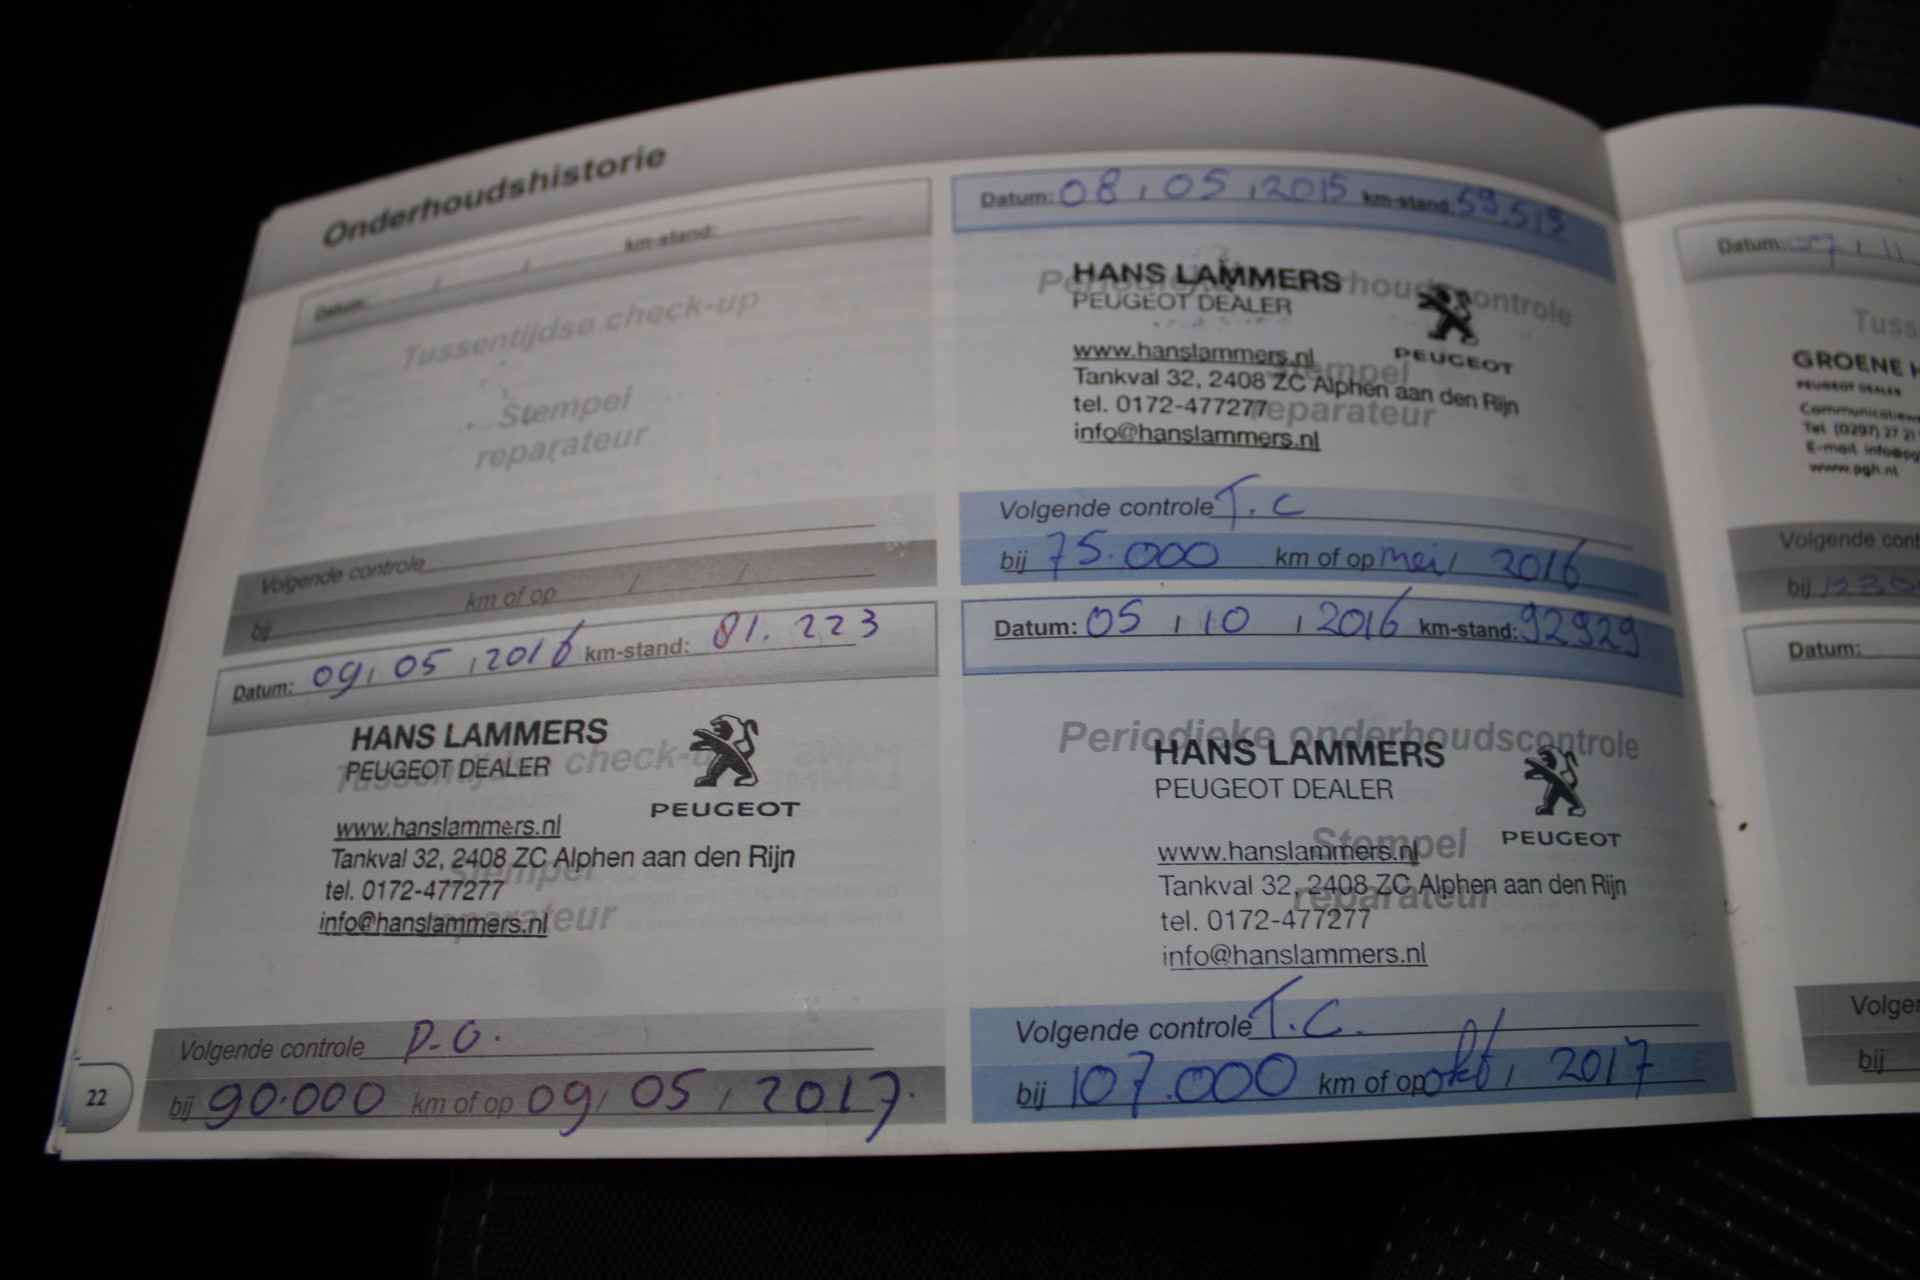 Onderhoudshistorie
Datum: / / km-stand:
Tussentijdse check-up
Stempel
reparateur
Volgende controle
bij km of op / /
Datum: 09, 05, 2016 km-stand: 81.223
HANS LAMMERS
PEUGEOT DEALER
PEUGEOT
check-
www.hanslammers.nl
Tankval 32, 2408 ZC Alphen aan den Rijn
tel. 0172-477277
info@hanslammers.nl
Volgende controle P.O.
bij 90.000 km of op 09, 05, 2017.
22
Datum: 08, 05, 2015 km-stand: 59.519
Periodieke onderhoudscontrole
HANS LAMMERS
PEUGEOT DEALER
PEUGEOT
www.hanslammers.nl
Stempel
Tankval 32, 2408 ZC Alphen aan den Rijn
tel. 0172-477277
reparateur
info@hanslammers.nl
Volgende controle T.C
bij 75.000 km of op mei, 2016
Datum: 05, 10, 2016 km-stand: 92929
Periodieke onderhoudscontrole
HANS LAMMERS
PEUGEOT DEALER
PEUGEOT
Stempel
www.hanslammers.nl
Tankval 32, 2408 ZC Alphen aan den Rijn
reparateur
tel. 0172-477277
info@hanslammers.nl
Volgende controle T.C.
bij 107.000 km of op okt, 2017
Datum: 07, 11
Tuss
GROENE H
PEUGEOT DEALER
Communicatiew
Tel. (0297) 27 21
E-mail: info@pg
www.pgh.nl
Volgende cont
bij
Datum:
Volge
bij